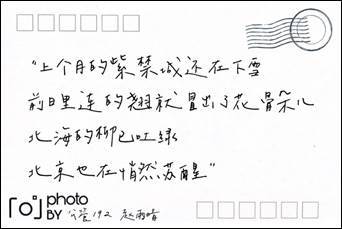 “上个月的紫禁城还在下雪
前日里连的翘就冒出了花骨朵儿
北海的柳已吐绿
北京也在悄然苏醒”
photo
BY 公管192 赵雨晴